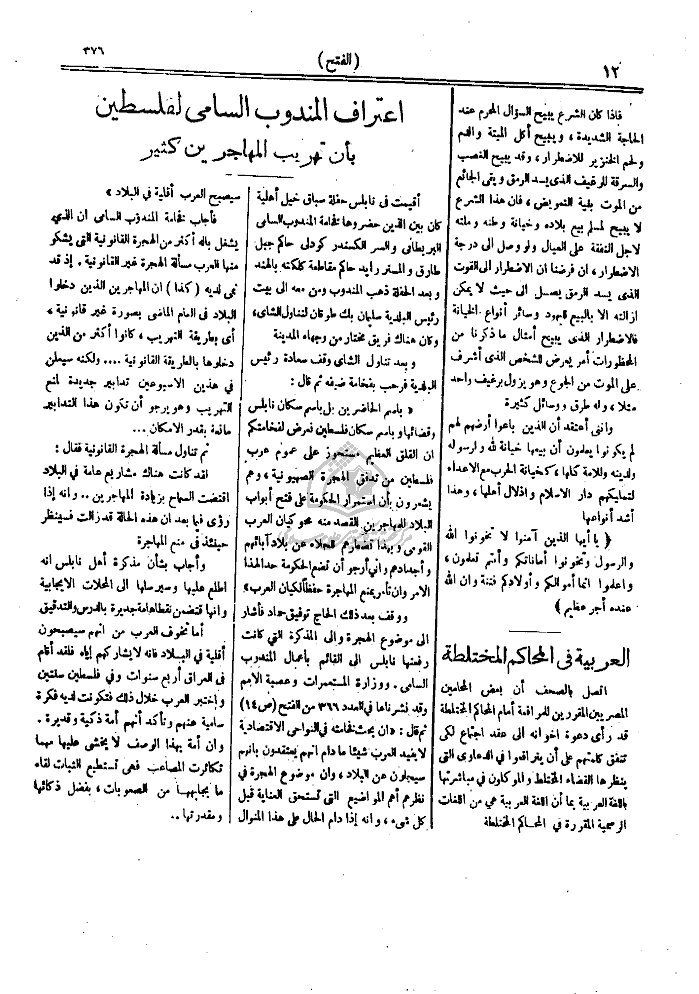 ١٢
(الفتح)
٣٧٦
فاذا كان الشرع يبيح السؤال المحرم عند
الحاجة الشديدة ، ويبيح أكل الميتة والدم
ولحم الخنزير للاضطرار ، وقد يبيح الغصب
والسرقة للرغيف الذى يسد الرمق ويقى الجائع
من الموت بنية التعويض ، فان هذا الشرع
لا يبيح لمسلم بيع بلاده وخيانة وطنه وملته
لاجل النفقة على العيال ولو وصل الى درجة
الاضطرار ، ان فرضنا ان الاضطرار الى القوت
الذى يسد الرمق يصل الى حيث لا يمكن
ازالته الا بالبيع لليهود وسائر أنواع الخيانة
فالاضطرار الذى يبيح أمثال ما ذكرنا من
المحظورات أمر يعرض للشخص الذى أشرف
على الموت من الجوع وهو يزول برغيف واحد
مثلا ، وله طرق ووسائل كثيرة
وانى أعتقد أن الذين باعوا أرضهم لهم
لم يكونوا يعلمون أن بيعها خيانة لله ولرسوله
ولدينه وللامة كلها ، كخيانة الحرب مع الاعداء
لتمليكهم دار الاسلام واذلال أهلها ، وهذا
أشد أنواعها
﴿ يا أيها الذين آمنوا لا تخونوا الله
والرسول وتخونوا أماناتكم وأنتم تعلمون ،
واعلموا انما أموالكم وأولادكم فتنة وان الله
عنده أجر عظيم ﴾
العربية فى المحاكم المختلطة
اتصل بالصحف أن بعض المحامين
المصريين المقررين للمرافعة أمام المحاكم المختلطة
قد رأى دعوة اخوانه الى عقد اجتماع لكى
تتفق كلمتهم على أن يترافعوا فى الدعاوى التى
ينظرها القضاء المختلط والموكلون فى مباشرتها
باللغة العربية بما أن اللغة العربية هى من اللغات
الرسمية المقررة فى المحاكم المختلطة
اعتراف المندوب السامى لفلسطين
بأن تهريب المهاجرين كثير
أقيمت فى نابلس حفلة سباق خيل أهلية
كان بين الذين حضروها فخامة المندوب السامى
البريطانى والسر الكسندر كودلى حاكم جبل
طارق والمستر رايد حاكم مقاطعة كلكته بالهند
وبعد الحفلة ذهب المندوب ومن معه الى بيت
رئيس البلدية سليمان بك طوقان لتناول الشاى ،
وكان هناك فريق مختار من وجهاء المدينة
وبعد تناول الشاى وقف سعادة رئيس
البلدية فرحب بفخامة ضيفه ثم قال :
« باسم الحاضرين بل باسم سكان نابلس
وقضائها وباسم سكان فلسطين نعرض لفخامتكم
ان القلق العظيم مستحوذ على عموم عرب
فلسطين من تدفق الهجرة الصهيونية ، وهم
يشعرون بأن استمرار الحكومة على فتح أبواب
البلاد للمهاجرين القصد منه محو كيان العرب
القومى وبهذا تضطرهم للجلاء عن بلاد آبائهم
وأجدادهم وانى أرجو أن تضع الحكومة حدا لهذا
الامر وان تأمر بمنع المهاجرة حفظا لكيان العرب»
ووقف بعد ذلك الحاج توفيق حماد فأشار
الى موضوع الهجرة والى المذكرة التى كانت
رفعتها نابلس الى القائم بأعمال المندوب
السامى . ووزارة المستعمرات وعصبة الامم
وقد نشرناها فى العدد ٣٦٦ من الفتح (ص١٤)
ثم قال : «ان بحث فخامته فى النواحى الاقتصادية
لا يفيد العرب شيئا ما دام انهم يعتقدون بانهم
سيجلون عن البلاد ، وان موضوع الهجرة فى
نظرهم أهم المواضيع التى تستحق العناية قبل
كل شىء ، وانه إذا دام الحال على هذا المنوال
سيصبح العرب أقلية فى البلاد »
فأجاب فخامة المندوب السامى ان الذي
يشغل باله أكثر من الهجرة القانونية التى يشكو
منها العرب مسألة الهجرة غير القانونية . إذ قد
نمى لديه (كذا) ان المهاجرين الذين دخلوا
البلاد فى العام الماضى بصورة غير قانونية ،
أى بطريقة التهريب ، كانوا أكثر من الذين
دخلوها بالطريقة القانونية .... ولكنه سيعلن
فى هذين الاسبوعين تدابير جديدة لمنع
التهريب وهو يرجو أن تكون هذا التدابير
مانعة بقدر الامكان ...
ثم تناول مسألة الهجرة القانونية فقال :
لقد كانت هناك مشاريع عامة فى البلاد
اقتضت السماح بزيادة المهاجرين .. وانه إذا
رؤى فيما بعد ان هذه الحالة قد زالت فسينظر
حينئذ فى منع المهاجرة
وأجاب بشأن مذكرة أهل نابلس انه
اطلع عليها وسيرسلها الى المحلات الايجابية
وانها تتضمن نقطا هامة جديرة بالدرس والتدقيق
أما تخوف العرب من انهم سيصبحون
أقلية فى البلاد فانه لا يشاركهم إياه فلقد أقام
فى العراق أربع سنوات وفى فلسطين سنتين
واختبر العرب خلال ذلك فتكونت لديه فكرة
سامية عنهم وتأكد أنهم أمة ذكية وقديرة .
وان أمة بهذا الوصف لا يخشى عليها مهما
تكاثرت المصاعب فهى تستطيع الثبات لقاء
ما يجابهها من الصعوبات ، بفضل ذكائها
ومقدرتها ..